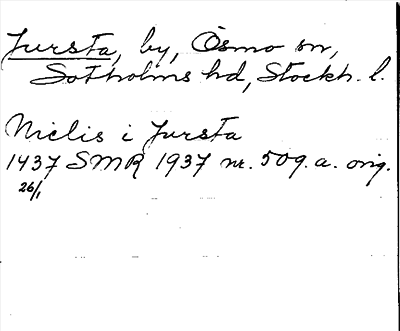 Jursta, by, Ösmo sn,
Sotholms hd, Stockh. l.
Niclis i Jursta
1437 SMR 1937 nr. 509. a. orig.
26/1